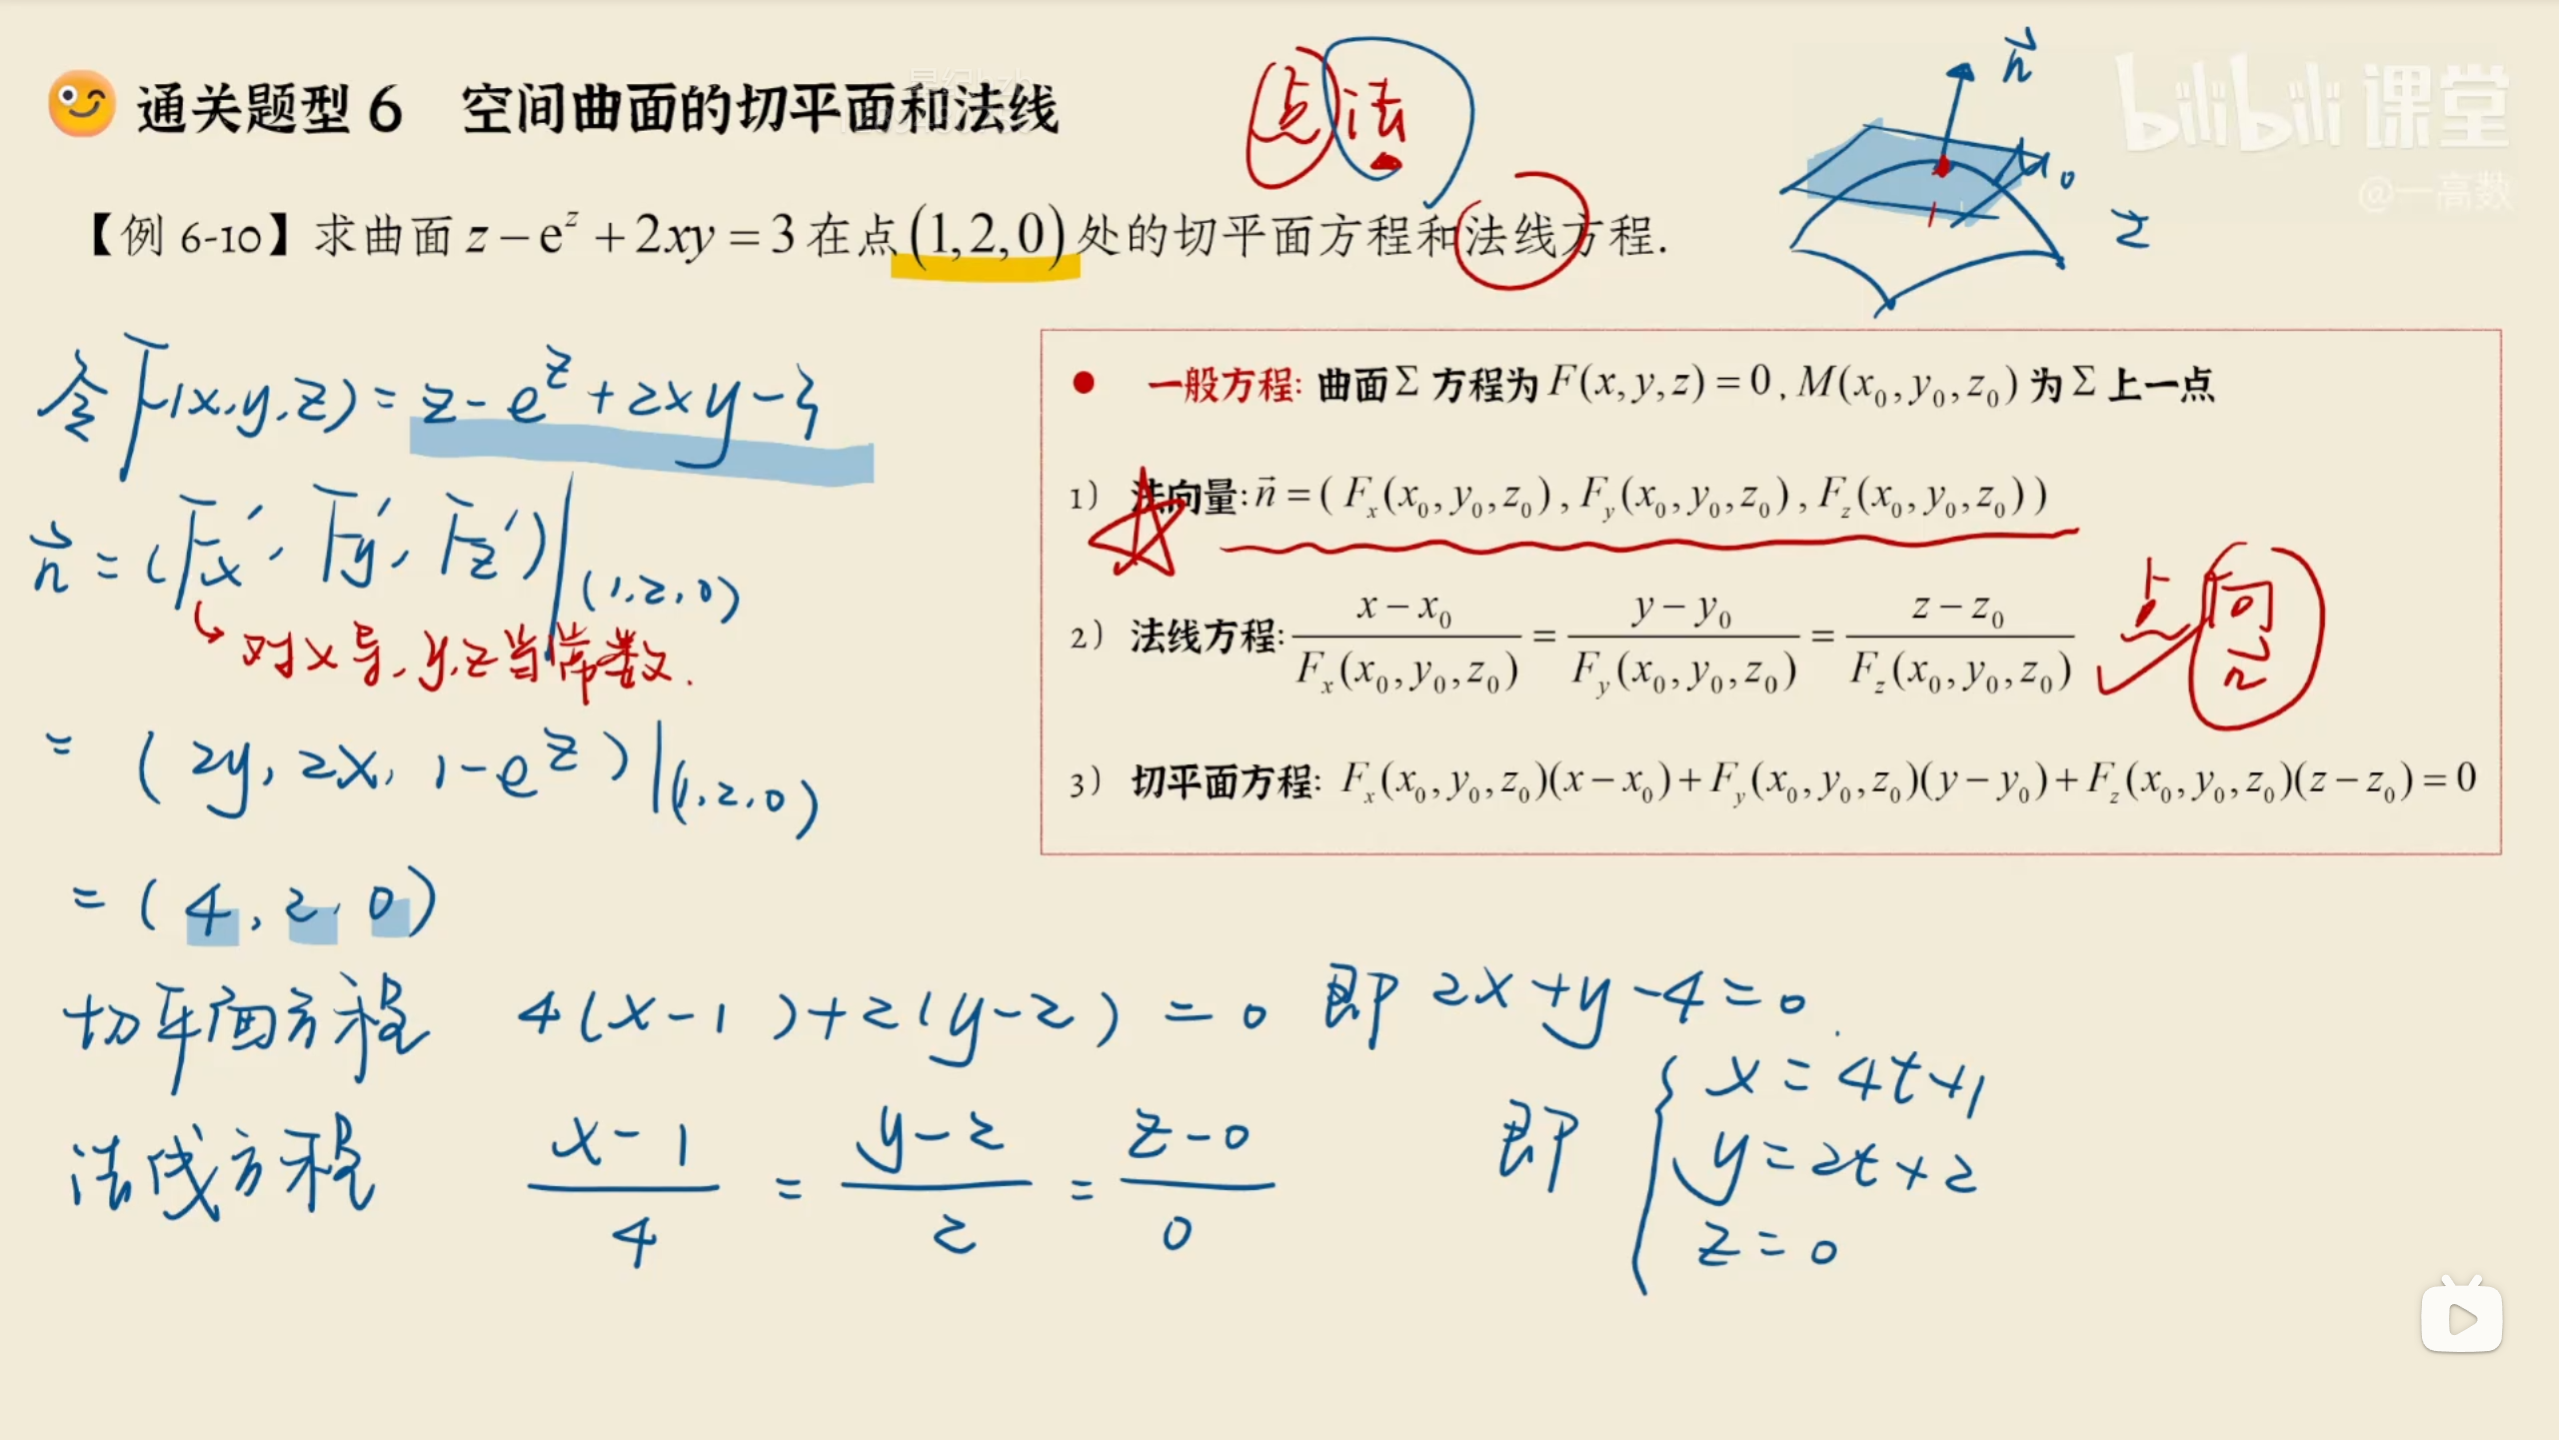 通关题型 6 空间曲面的切平面和法线
点法
n⃗
M₀
Σ
bilibili 课堂
@一高数
【例 6-10】求曲面 z − e^z + 2xy = 3 在点 (1,2,0) 处的切平面方程和法线方程.
令 F(x,y,z) = z - e^z + 2xy - 3
n⃗ = (Fx', Fy', Fz')|(1,2,0)
对x导,y,z当常数.
= (2y, 2x, 1-e^z)|(1,2,0)
= (4, 2, 0)
● 一般方程: 曲面 Σ 方程为 F(x,y,z) = 0 , M(x₀,y₀,z₀) 为 Σ 上一点
1） 法向量: n⃗ = ( F_x(x₀,y₀,z₀) , F_y(x₀,y₀,z₀) , F_z(x₀,y₀,z₀) )
2） 法线方程: (x − x₀)/F_x(x₀,y₀,z₀) = (y − y₀)/F_y(x₀,y₀,z₀) = (z − z₀)/F_z(x₀,y₀,z₀)
点向
n⃗
3） 切平面方程: F_x(x₀,y₀,z₀)(x − x₀) + F_y(x₀,y₀,z₀)(y − y₀) + F_z(x₀,y₀,z₀)(z − z₀) = 0
切平面方程 4(x-1)+2(y-2) = 0 即 2x+y-4=0.
法线方程 (x-1)/4 = (y-2)/2 = (z-0)/0 即
x = 4t+1
y = 2t+2
z = 0